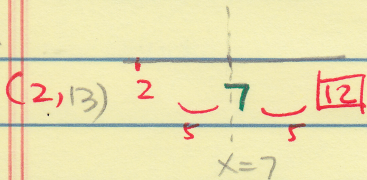 (2,13) 2 7 12
5 5
x=7